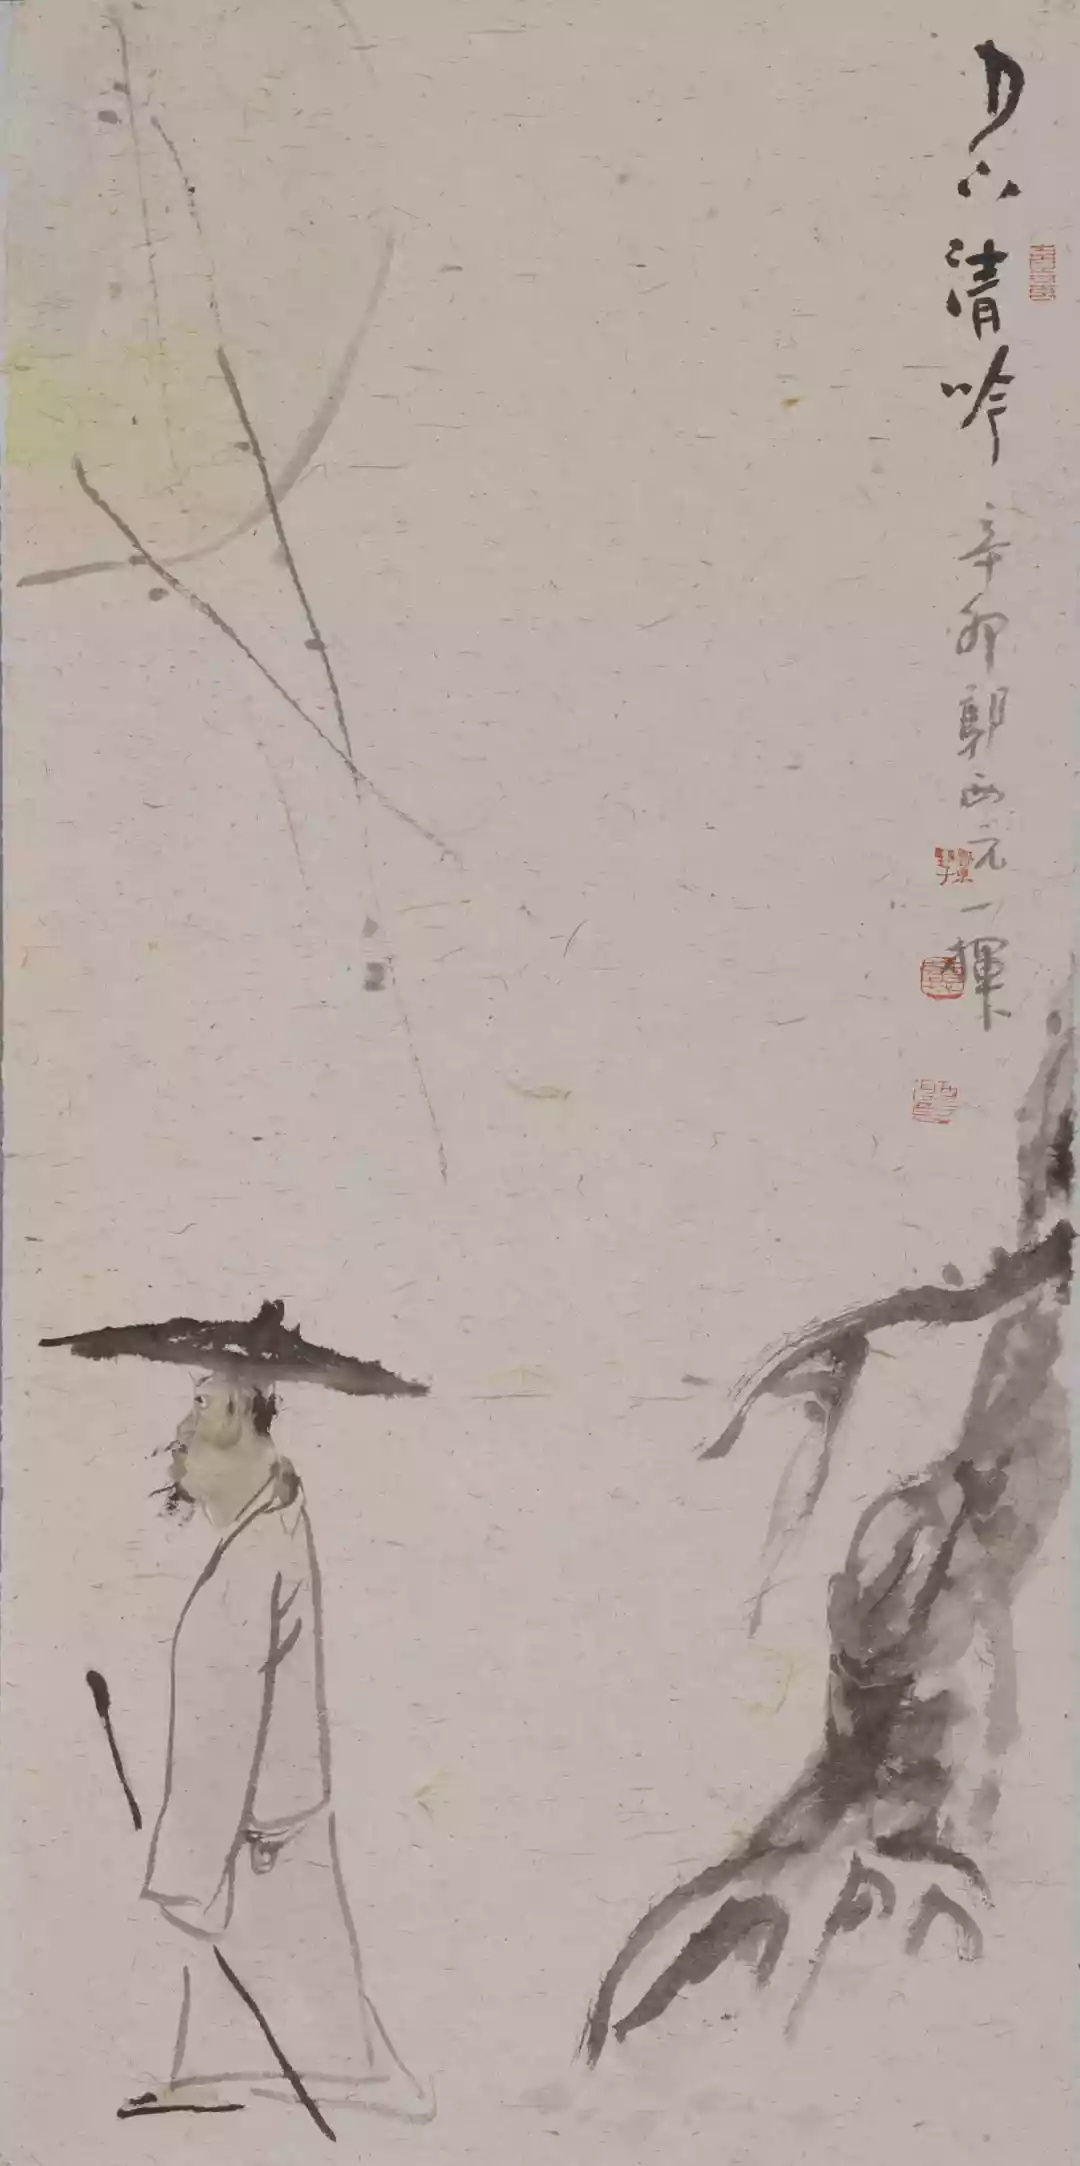 月下清吟
辛卯郭西元一揮